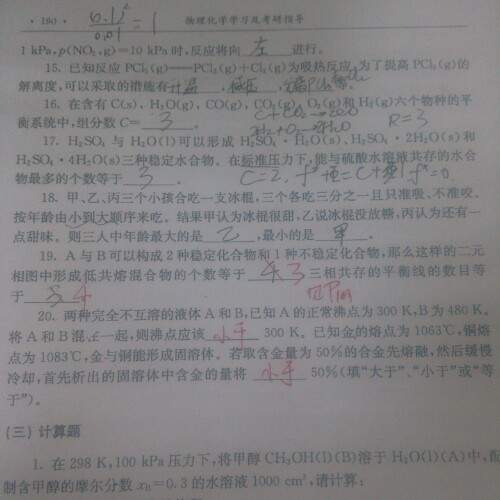 · 190 · 0.1²/0.01 = 1 物理化学学习及考研指导
1 kPa,p(NO₂,g)=10 kPa 时,反应将向 左 进行。
15. 已知反应 PCl₅(g)══PCl₃(g)+Cl₂(g)为吸热反应,为了提高 PCl₅(g)的
解离度,可以采取的措施有 升温、减压、
16. 在含有 C(s)、H₂O(g)、CO(g)、CO₂(g)、O₂(g)和 H₂(g)六个物种的平
衡系统中,组分数 C= 3 。 R=3
17. H₂SO₄ 与 H₂O(l)可以形成 H₂SO₄·H₂O(s)、H₂SO₄·2H₂O(s)和
H₂SO₄·4H₂O(s)三种稳定水合物。在标准压力下,能与硫酸水溶液共存的水合
物最多的个数等于 3 。 C=2,
18. 甲、乙、丙三个小孩合吃一支冰棍,三个各吃三分之一且只准吸、不准咬。
按年龄由小到大顺序来吃。结果甲认为冰棍很甜,乙说冰棍没放糖,丙认为还有一
点甜味。则三人中年龄最大的是 乙 ,最小的是 甲 。
19. A 与 B 可以构成 2 种稳定化合物和 1 种不稳定化合物,那么这样的二元
相图中形成低共熔混合物的个数等于 3 三相共存的平衡线的数目等
于 4
20. 两种完全不互溶的液体 A 和 B,已知 A 的正常沸点为 300 K,B 为 480 K。
将 A 和 B 混在一起,则沸点应该 小于 300 K。已知金的熔点为 1063℃,铜熔
点为 1083℃,金与铜能形成固溶体。若取含金量为 50%的合金先熔融,然后缓慢
冷却,首先析出的固溶体中含金的量将 小于 50%(填“大于”、“小于”或“等
于”)。
(三) 计算题
1. 在 298 K,100 kPa 压力下,将甲醇 CH₃OH(l)(B)溶于 H₂O(l)(A)中,配
制含甲醇的摩尔分数 x_B=0.3 的水溶液 1000 cm³,请计算: